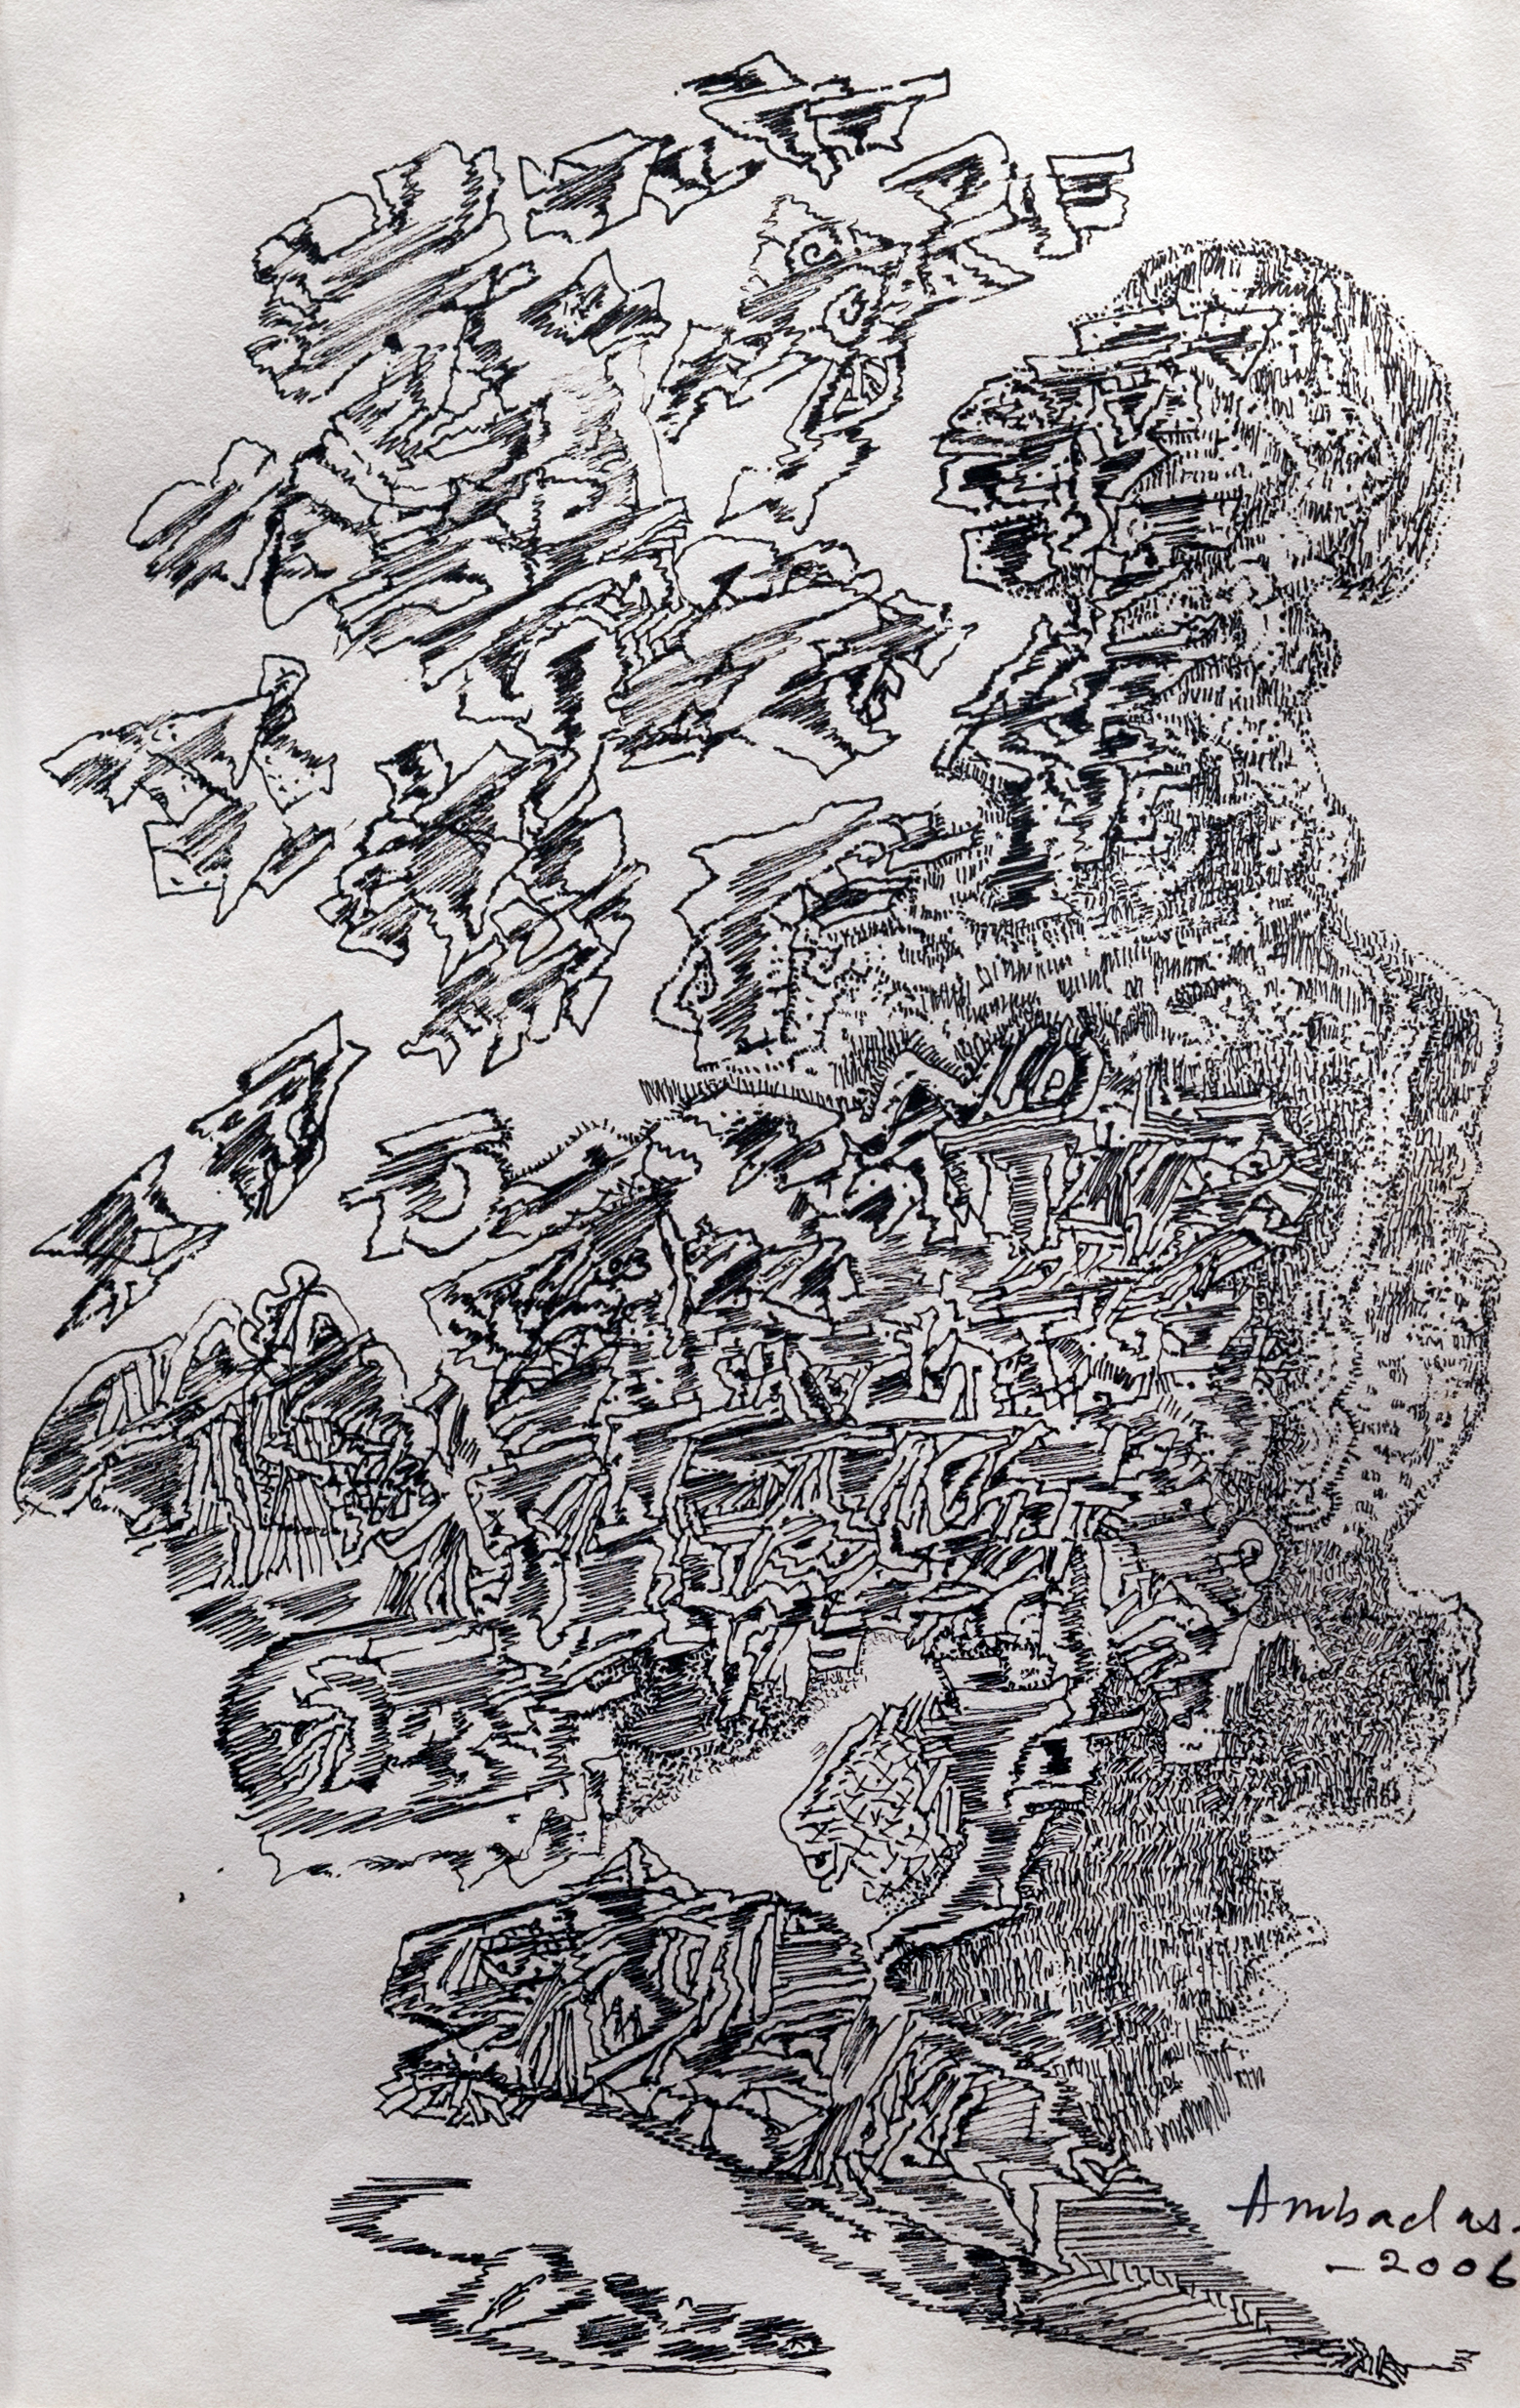 Ambadas.
-2006